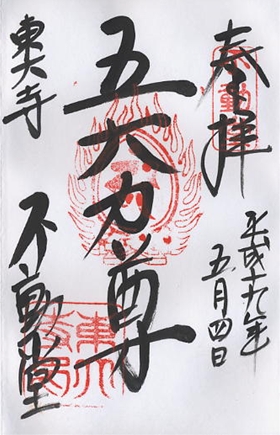 奉拝
平成十九年
五月四日
五大力尊
東大寺
不動堂